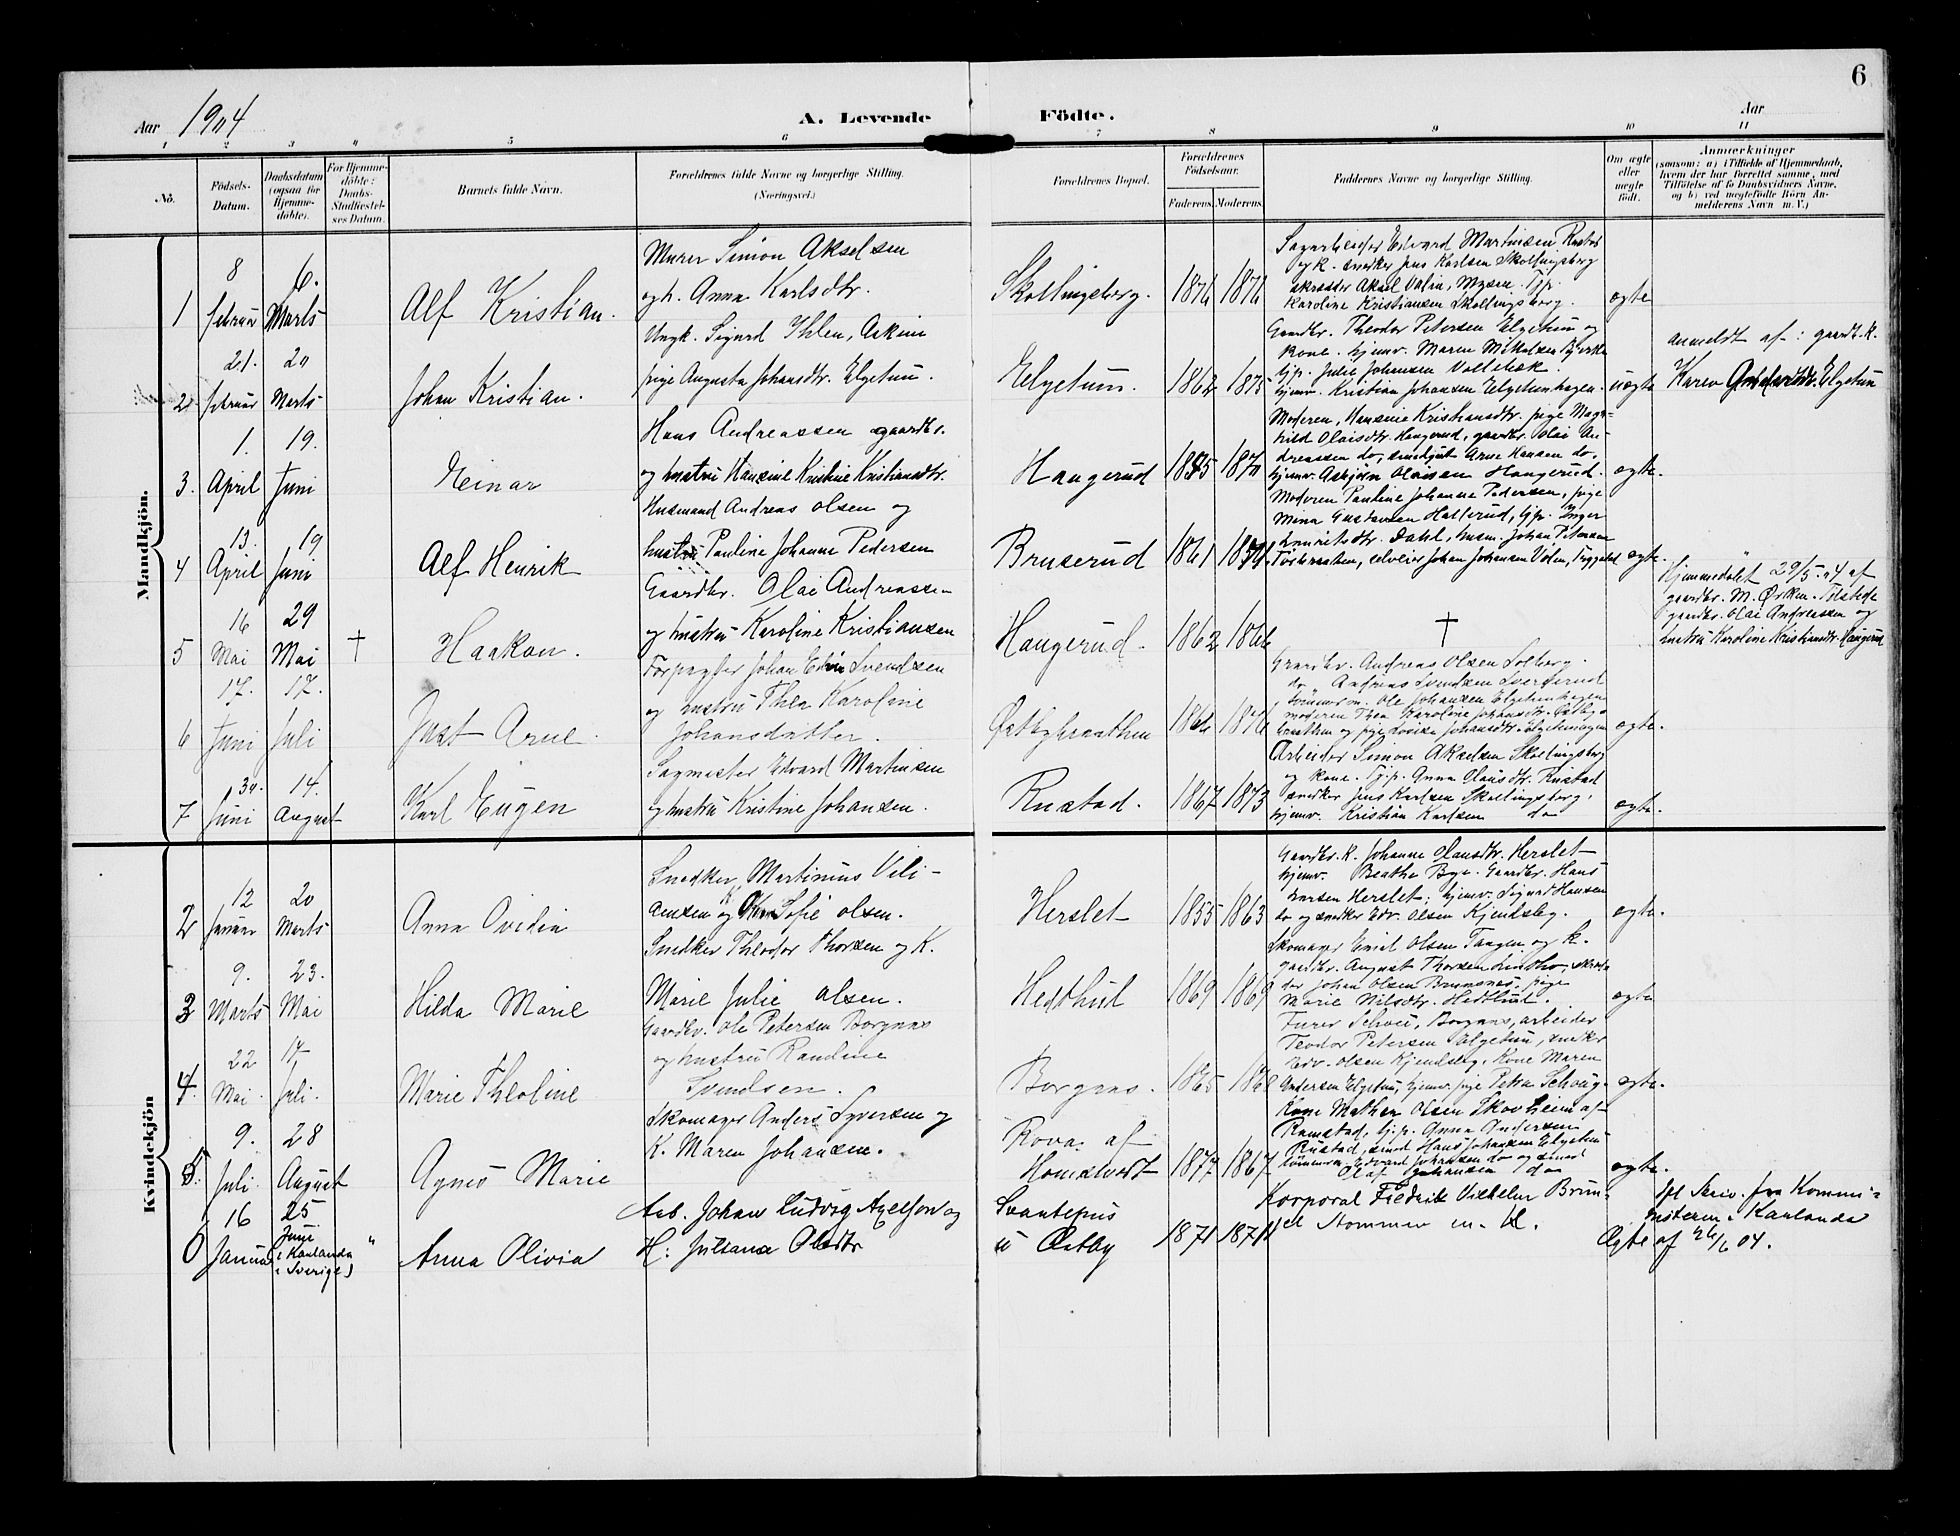 6
Aar 1904
A. Levende Födte.
Aar
1 2 3 4 5 6 7 8 9 10 11
No.
Födsels-
Datum.
Daabsdatum
(ogsaa for
Hjemme-
döbte).
For Hjemme-
döbte:
Daabs-
Stadfæstel-
ses Datum.
Barnets fulde Navn.
Forældrenes fulde Navne og borgerlige Stilling.
(Næringsvei.)
Forældrenes Bopæl.
Forældrenes
Födselsaar.
Faderens. Moderens.
Faddernes Navne og borgerlige Stilling.
Om ægte
eller
uegte
födt.
Anmærkninger
(saasom: a) i Tilfælde af Hjemmedaab,
hvem der har forrettet samme, med
Tilföielse af to Daabsvidners Navne,
og b) ved uegtefödte Börn An-
melderens Navn m. V.)
Mandkjön.
1
8
Februar
6.
Marts
Alf Kristian.
Murer Simon Akselsen
og h. Anna Karlsdtr.
Skollingsborg.
1876 1876
Sagarbeider Edvard Martinsen Rustad
og k. snedker Jens Karlsen Skollingsborg
skrædder Aksel Valin, Mysen. Tjp.
Karoline Kristiansen Skollingsborg.
egte
2
21.
Februar
20
Marts
Johan Kristian.
Ungk. Sigurd Ihlen, Askim
pige Augusta Johansdtr. Elgetun.
Elgetun.
1862 1875
Gaardbr. Theodor Petersen Elgetun og
Kone. hjemv. Maren Mikalsen
tjp. Julie Johansen
hjemv. Kristian Johansen Elgetunhagen.
uægte
anmeldt af: gaardb. k.
Karen Elgetun
3.
1.
April
19.
Juni
Einar
Hans Andreassen gaardbr.
og hustru Hansine Kristine Kristiansdtr.
Haugerud
1870
Moderen, Hansine Kristiansdtr. pige Mag-
hild Olaisdtr. Haugerud, gaardbr. Olai An-
dreassen do, smedgut Arne Hansen do,
hjemv. Asbjörn Olaisen Haugerud.
egte.
4
13.
April
19
Juni
Alf Henrik
Husmand Andreas Olsen og
hustru Pauline Johanne Pedersen
Bruserud
1861
Moderen Pauline Johanne Pedersen, pige
Mina Gustavsen Hallerud, tjp. Inger
Dahl, husm. Johan Petersen
selveier Johan Johansen
egte.
5
16
Mai
29
Mai
†
Haakon.
Gaardbr. Olai Andreassen
og hustru Karoline Kristiansen
Haugerud.
1862 1866
†
Hjemmedöbt 29/5 04 af
gaardbr. M. Tilstede
gaardbr. Olai Andreassen og
hustru Karoline Kristiansdtr. Haugerud
6
17.
Juni
17.
Juli
Just Arne.
Forpagter Johan Edvin Svendsen
og hustru Thea Karoline
Johansdatter.
Østbybraathen
1864 1876
Gaardbr. Andreas Olsen Solberg.
do Andreas Svendsen Sverserud
tömmerm. Ole Johansen Elgetunhagen
moderen Thea Karoline Johansdtr. Østby-
braathen og pige Lovise Johansdtr. Elgetunhagen
egte.
7
30.
Juni
14.
August
Karl Eugen
Sagmester Edvard Martinsen
og hustru Kristine Johansen.
Rustad.
1867 1873
Arbeider Simon Akselsen Skollingsborg
og kone. Tjp. Anna Olausdtr. Rustad
snedker Jens Karlsen Skollingsborg,
hjemv. Kristian Karlsen do
egte.
Kvindekjön
2
12
Januar
20
Marts
Anna Ovidia
Snedker Martinius Vili-
amsen og Sofie Olsen.
Herslet
1855 1863
Gaardbr. K. Johanne Olausdtr. Herslet
hjemv. Beathe Bye. Gaardbr. Hans
Larsen Herslet; hjemv. Sigurd Hansen
do og snedker Edv. Olsen Kjendsleg.
egte.
3
9.
Marts
23.
Mai
Hilda Marie
Snedker Theodor Thorsen og K.
Marie Julie Olsen.
Hedthul
1869 1869
Skomager Emil Olsen Tangen og K.
gaardbr. August Thorsen skræd-
der Johan Olsen Brunsnes, pige
Marie Nilsdtr. Hedthul.
egte
4.
22
Mai
17
Juli.
Marie Theoline
Gaardbr. Ole Petersen Borgnæs
og hustru Randine
Svendsen.
Borgnæs.
1865
Furer Schou, Borgnæs, arbeider
Teodor Petersen Elgetun, snedker
Edv. Olsen Kjendsleg. Kone Maren
Andersen Elgetun, hjemv. pige Petra Schoug.
egte.
5.
9.
Juli
28
August
Agnes Marie
Skomager Anders Syversen og
K. Maren Johansen.
Rova af
Homstvedt
1877 1867
Kone Mathea Olsen Skovheim af
Ramstad, tjp. Anna Andersen
Rustad, smed Hans Johansen Elgetun
tömmerm. Edvard Johansen do og smed
Olaf Johansen do
egte.
6
16
Januar
25
Juni
(Karlanda
i Sverige)
"
Anna Olivia
Arb. Johan Ludvig Axelson og
H: Juliana Olsdtr
Svantepus
u Østby
1871 1871
Korporal Fredrik Vilhelm Brun-
ell Nommen m. H.
Ægte
ifl Skriv. fra Kommi-
nisteren i Karlanda
af 26/6 04.